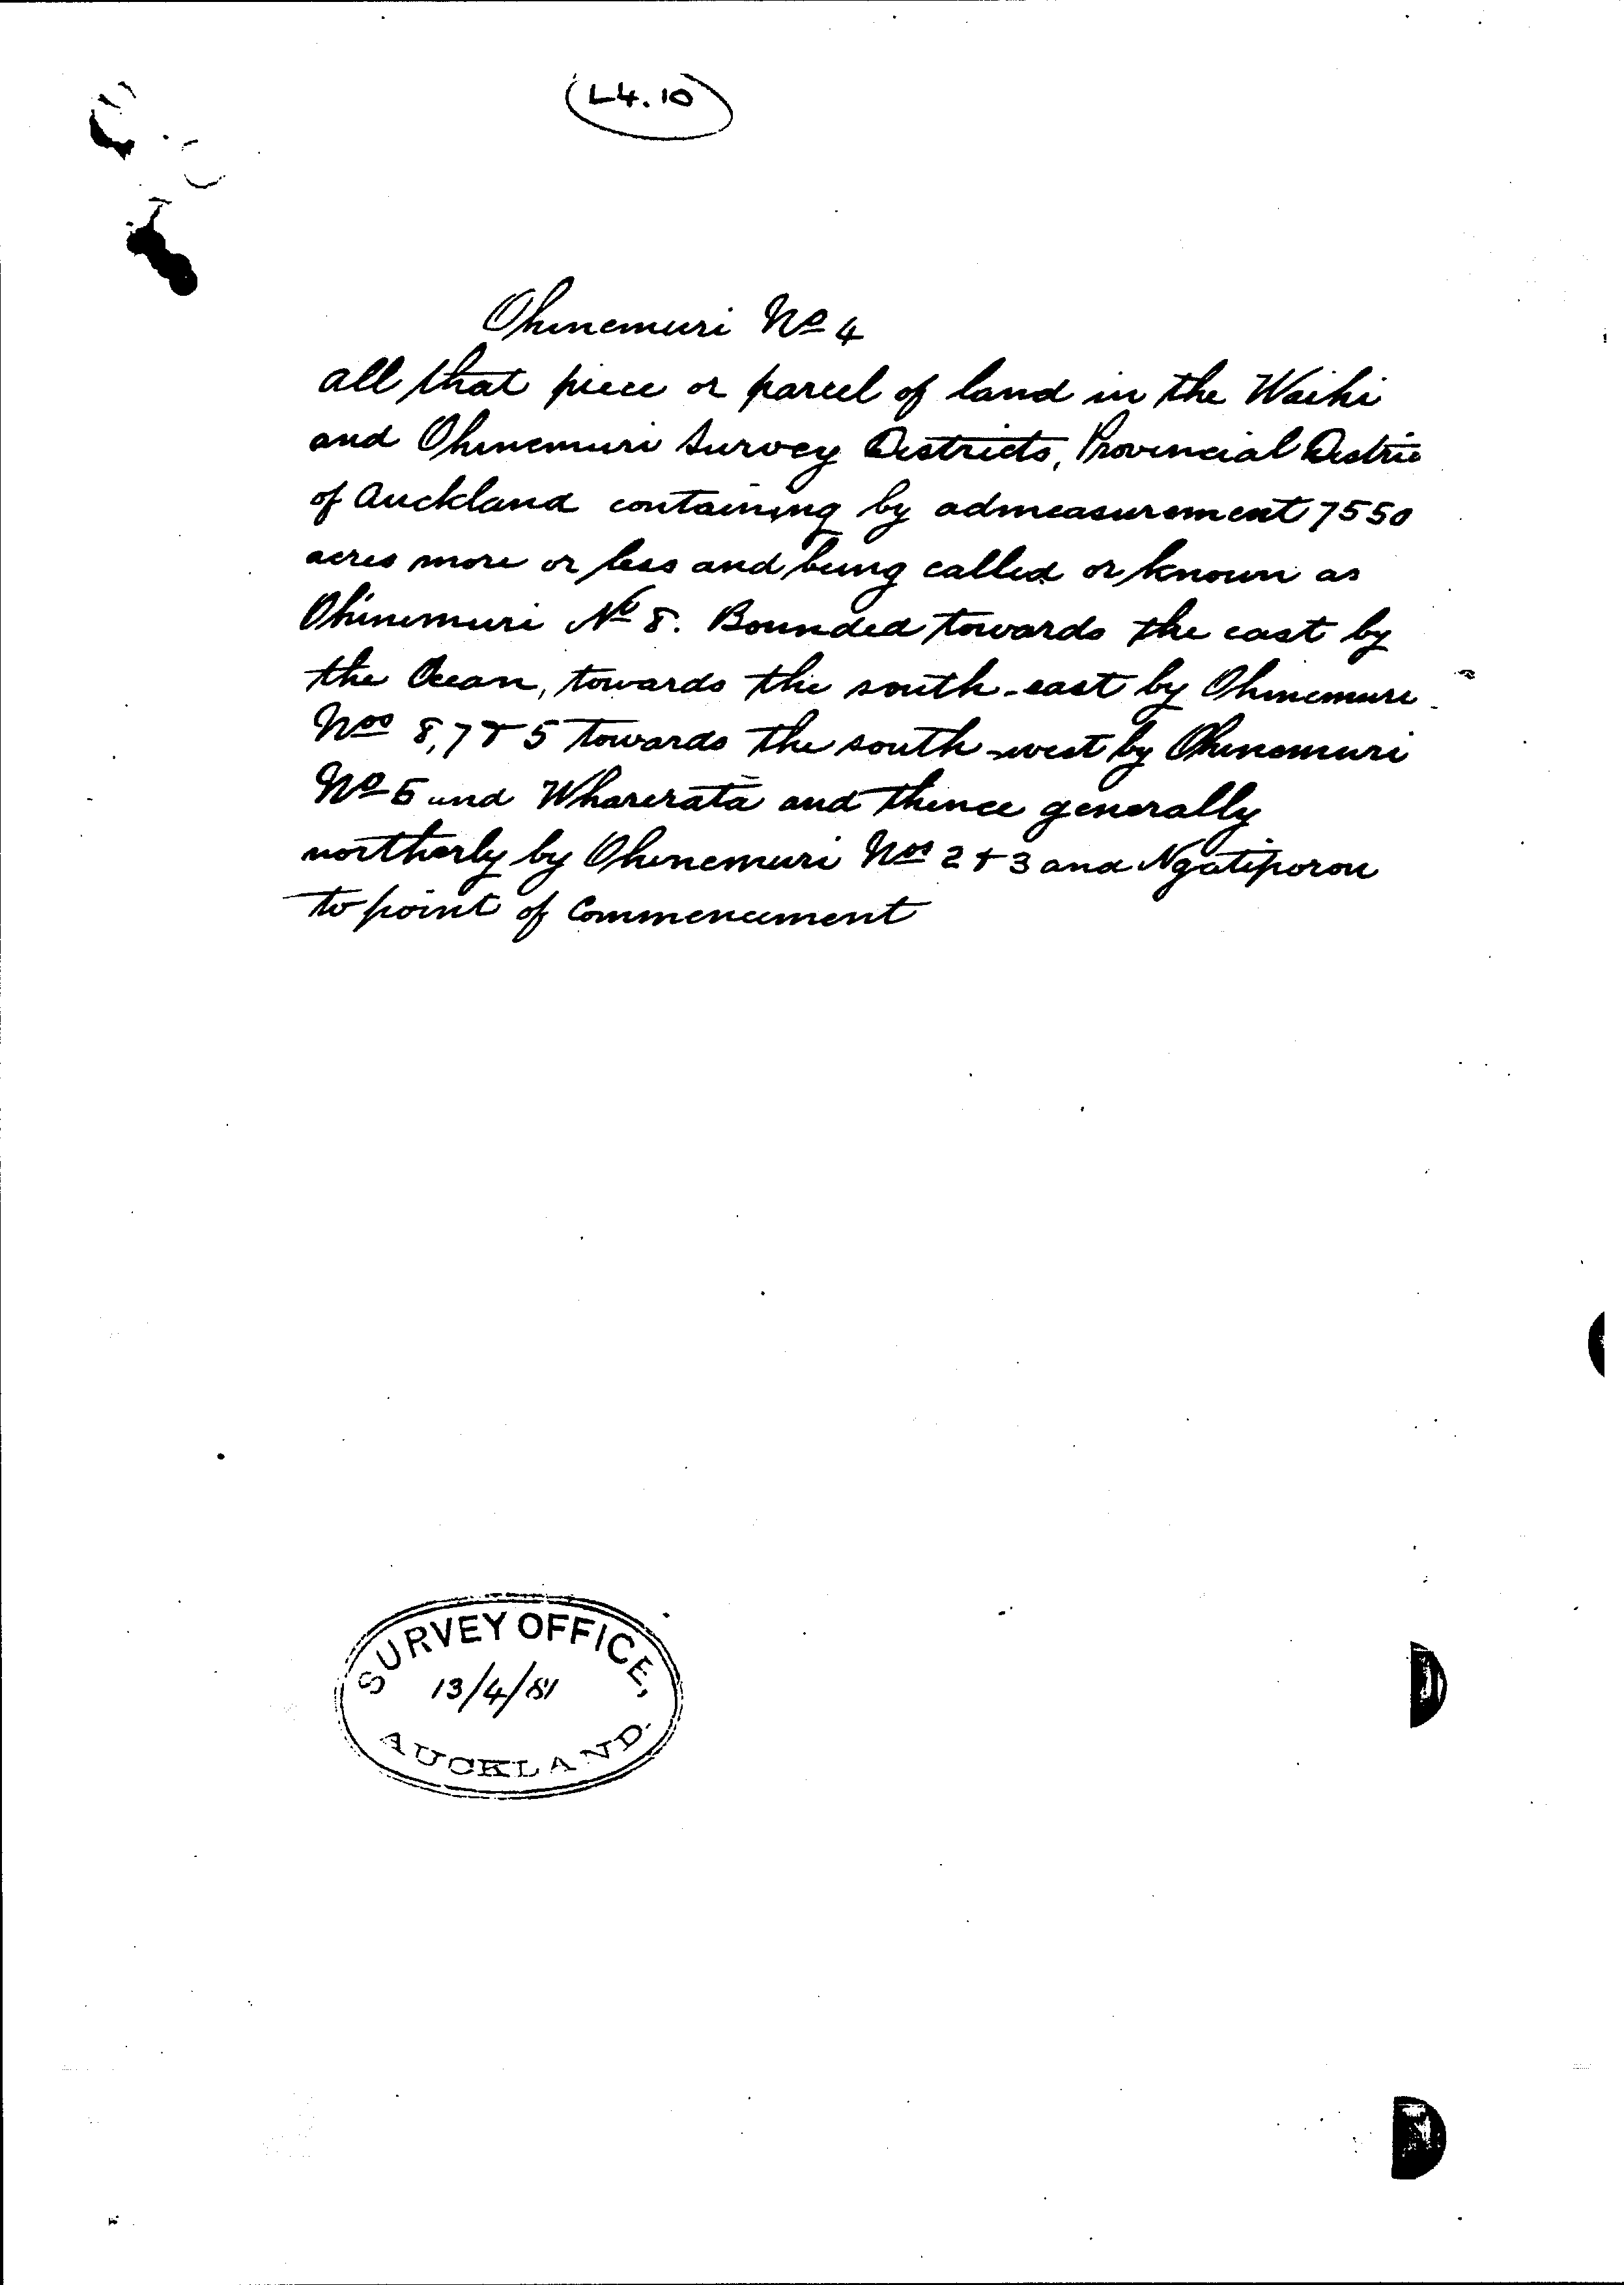 (L4.10)
Ohinemuri No 4
all that piece or parcel of land in the Waihi
and Ohinemuri Survey Districts, Provincial Distric
of Auckland containing by admeasurement 7550
acres more or less and being called or known as
Ohinemuri No 8. Bounded towards the east by
the Ocean, towards the south-east by Ohinemuri
Nos 8, 7 & 5 towards the south-west by Ohinemuri
No 5 and Wharerata and thence generally
northerly by Ohinemuri Nos 2 & 3 and Ngatiporou
to point of Commencement
SURVEY OFFICE,
13/4/81
AUCKLAND.